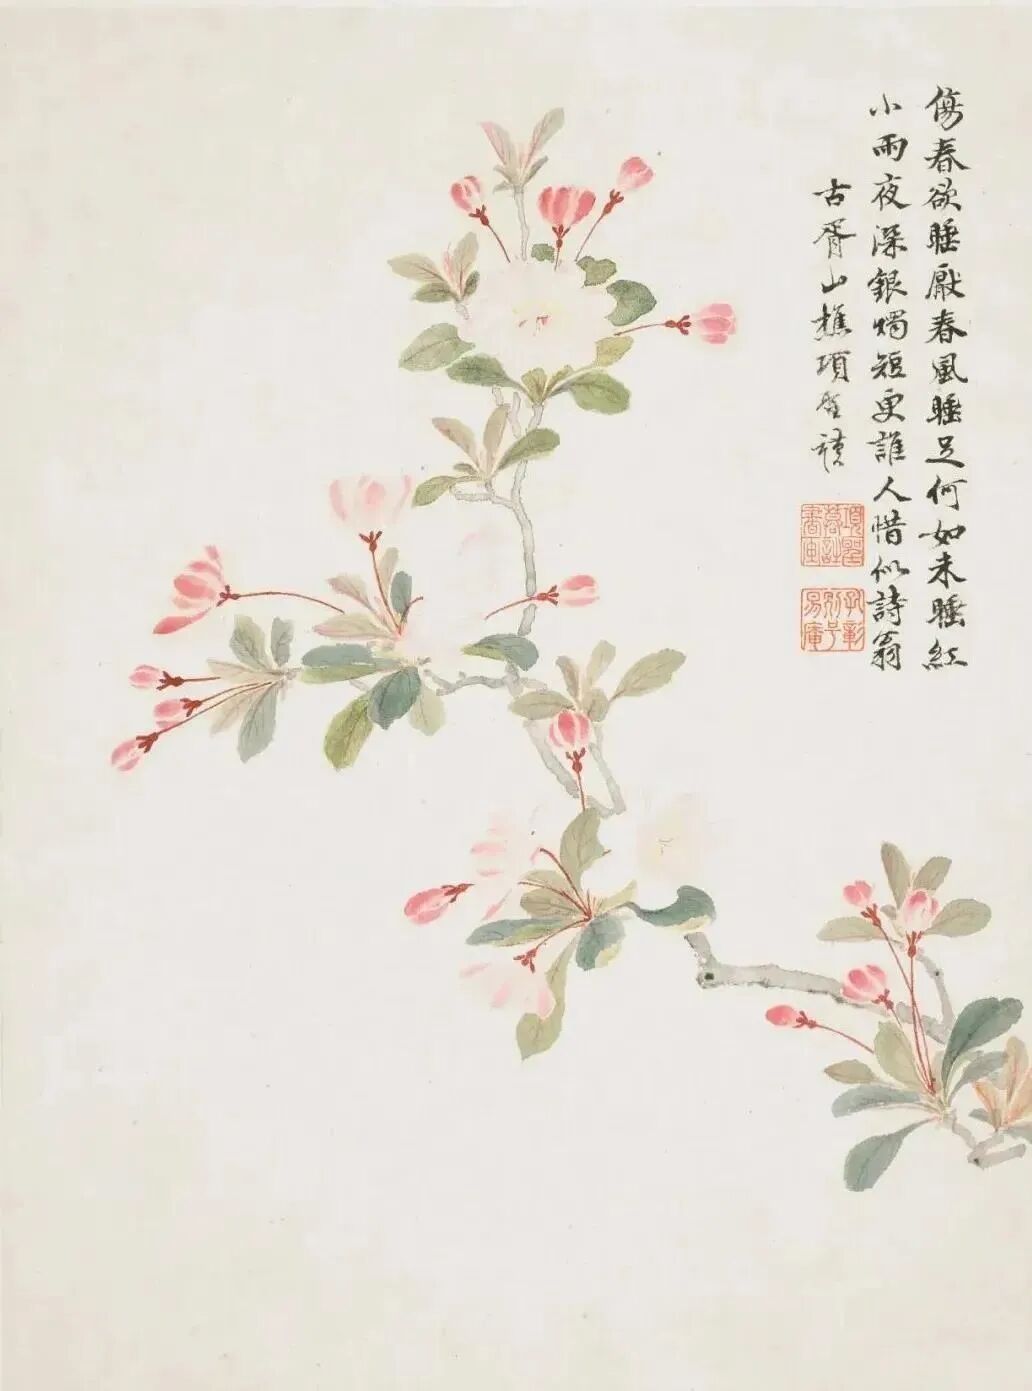 傷春欲睡厭春風睡足何如未睡紅
小雨夜深銀燭短更誰人惜似詩翁
古胥山樵項聖謨
項聖謨詩書画
孔彰易庵